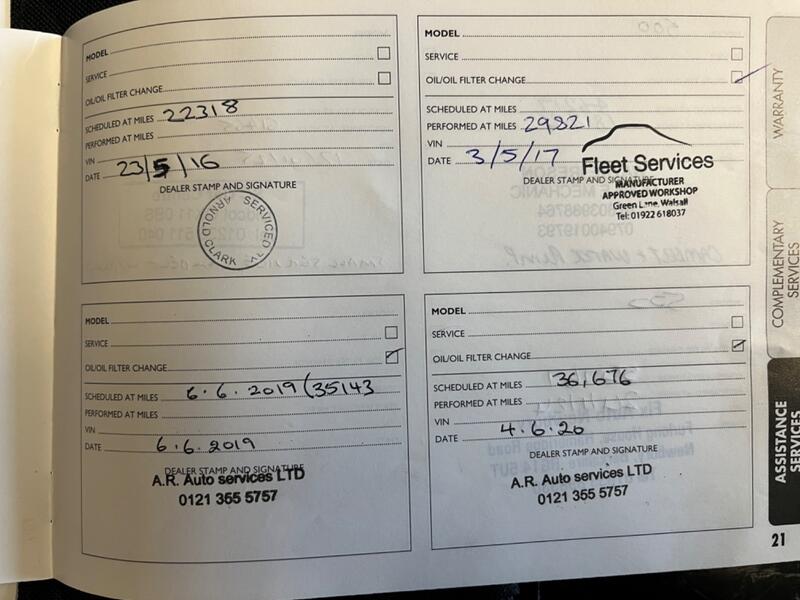 MODEL
SERVICE
OIL/OIL FILTER CHANGE
SCHEDULED AT MILES 22318
PERFORMED AT MILES
VIN
DATE 23/5/16
DEALER STAMP AND SIGNATURE
SERVICED
ARNOLD CLARK
MODEL
SERVICE
OIL/OIL FILTER CHANGE
SCHEDULED AT MILES
PERFORMED AT MILES 29821
VIN
DATE 3/5/17
DEALER STAMP AND SIGNATURE
Fleet Services
MANUFACTURER
APPROVED WORKSHOP
Green Lane, Walsall
Tel: 01922 618037
MODEL
SERVICE
OIL/OIL FILTER CHANGE
SCHEDULED AT MILES 6.6.2019 (35143
PERFORMED AT MILES
VIN
DATE 6.6.2019
DEALER STAMP AND SIGNATURE
A.R. Auto services LTD
0121 355 5757
MODEL
SERVICE
OIL/OIL FILTER CHANGE
SCHEDULED AT MILES 36,676
PERFORMED AT MILES
VIN
DATE 4.6.20
DEALER STAMP AND SIGNATURE
A.R. Auto services LTD
0121 355 5757
WARRANTY
COMPLEMENTARY
SERVICES
ASSISTANCE
SERVICES
21